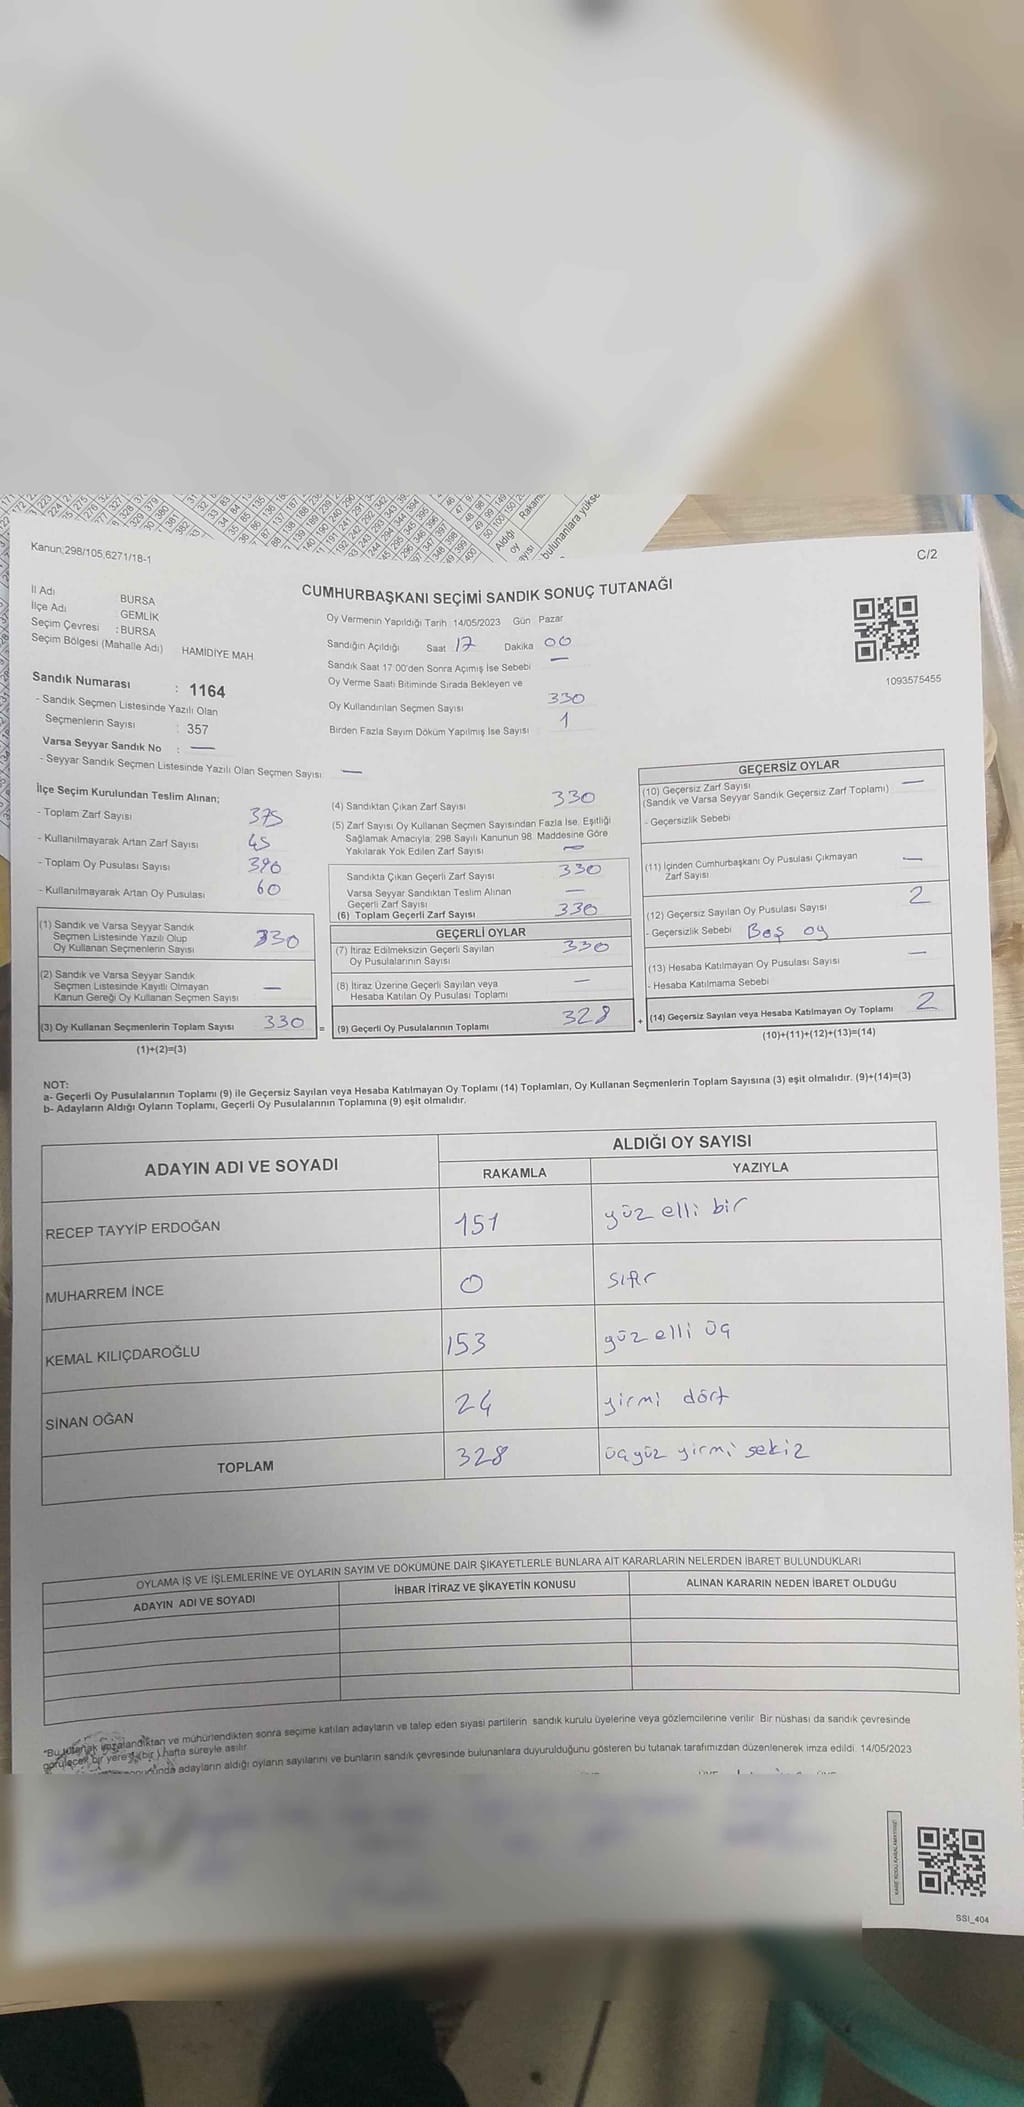 Kanun;298/105,6271/18-1
C/2
CUMHURBAŞKANI SEÇİMİ SANDIK SONUÇ TUTANAĞI
İl Adı BURSA
İlçe Adı GEMLİK
Seçim Çevresi : BURSA
Seçim Bölgesi (Mahalle Adı) HAMİDİYE MAH
Oy Vermenin Yapıldığı Tarih 14/05/2023 Gün Pazar
Sandığın Açıldığı Saat 17 Dakika 00
Sandık Saat 17 00'den Sonra Açımış İse Sebebi —
Oy Verme Saati Bitiminde Sırada Bekleyen ve
Oy Kullandırılan Seçmen Sayısı 330
Birden Fazla Sayım Döküm Yapılmış İse Sayısı 1
1093575455
Sandık Numarası : 1164
- Sandık Seçmen Listesinde Yazılı Olan
Seçmenlerin Sayısı : 357
Varsa Seyyar Sandık No : —
- Seyyar Sandık Seçmen Listesinde Yazılı Olan Seçmen Sayısı —
İlçe Seçim Kurulundan Teslim Alınan;
- Toplam Zarf Sayısı 375
- Kullanılmayarak Artan Zarf Sayısı 45
- Toplam Oy Pusulası Sayısı 390
- Kullanılmayarak Artan Oy Pusulası 60
(1) Sandık ve Varsa Seyyar Sandık
Seçmen Listesinde Yazılı Olup
Oy Kullanan Seçmenlerin Sayısı 330
(2) Sandık ve Varsa Seyyar Sandık
Seçmen Listesinde Kayıtlı Olmayan
Kanun Gereği Oy Kullanan Seçmen Sayısı —
(3) Oy Kullanan Seçmenlerin Toplam Sayısı 330 =
(1)+(2)=(3)
(4) Sandıktan Çıkan Zarf Sayısı 330
(5) Zarf Sayısı Oy Kullanan Seçmen Sayısından Fazla İse, Eşitliği
Sağlamak Amacıyla; 298 Sayılı Kanunun 98. Maddesine Göre
Yakılarak Yok Edilen Zarf Sayısı —
Sandıkta Çıkan Geçerli Zarf Sayısı 330
Varsa Seyyar Sandıktan Teslim Alınan
Geçerli Zarf Sayısı —
(6) Toplam Geçerli Zarf Sayısı 330
GEÇERLİ OYLAR
(7) İtiraz Edilmeksizin Geçerli Sayılan
Oy Pusulalarının Sayısı 330
(8) İtiraz Üzerine Geçerli Sayılan veya
Hesaba Katılan Oy Pusulası Toplamı —
(9) Geçerli Oy Pusulalarının Toplamı 328 +
GEÇERSİZ OYLAR
(10) Geçersiz Zarf Sayısı —
(Sandık ve Varsa Seyyar Sandık Geçersiz Zarf Toplamı)
- Geçersizlik Sebebi
(11) İçinden Cumhurbaşkanı Oy Pusulası Çıkmayan
Zarf Sayısı —
(12) Geçersiz Sayılan Oy Pusulası Sayısı 2
- Geçersizlik Sebebi Boş oy
(13) Hesaba Katılmayan Oy Pusulası Sayısı —
- Hesaba Katılmama Sebebi
(14) Geçersiz Sayılan veya Hesaba Katılmayan Oy Toplamı 2
(10)+(11)+(12)+(13)=(14)
NOT:
a- Geçerli Oy Pusulalarının Toplamı (9) ile Geçersiz Sayılan veya Hesaba Katılmayan Oy Toplamı (14) Toplamları, Oy Kullanan Seçmenlerin Toplam Sayısına (3) eşit olmalıdır. (9)+(14)=(3)
b- Adayların Aldığı Oyların Toplamı, Geçerli Oy Pusulalarının Toplamına (9) eşit olmalıdır.
ADAYIN ADI VE SOYADI ALDIĞI OY SAYISI
RAKAMLA YAZIYLA
RECEP TAYYİP ERDOĞAN 151 yüz elli bir
MUHARREM İNCE 0 sıfır
KEMAL KILIÇDAROĞLU 153 yüz elli üç
SİNAN OĞAN 24 yirmi dört
TOPLAM 328 üçyüz yirmi sekiz
OYLAMA İŞ VE İŞLEMLERİNE VE OYLARIN SAYIM VE DÖKÜMÜNE DAİR ŞİKAYETLERLE BUNLARA AİT KARARLARIN NELERDEN İBARET BULUNDUKLARI
ADAYIN ADI VE SOYADI İHBAR İTİRAZ VE ŞİKAYETİN KONUSU ALINAN KARARIN NEDEN İBARET OLDUĞU
"Bu tutanak imzalandıktan ve mühürlendikten sonra seçime katılan adayların ve talep eden siyasi partilerin sandık kurulu üyelerine veya gözlemcilerine verilir Bir nüshası da sandık çevresinde
görülecek bir yere (bir) hafta süreyle asılır
adayların aldığı oyların sayılarını ve bunların sandık çevresinde bulunanlara duyurulduğunu gösteren bu tutanak tarafımızdan düzenlenerek imza edildi. 14/05/2023
SSI_404